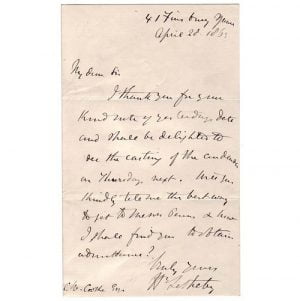 41 Finsbury Square
April 28 1863
My dear Sir
I thank you for your
kind note of yesterdays date
and shall be delighted to
see the casting of the condenser
on Thursday next. Will you
kindly tell me the best way
to get to Messrs Penns & how
I should find you to obtain
admittance?
Truly yours
Hy Letheby
C.W. Cooke Esq.